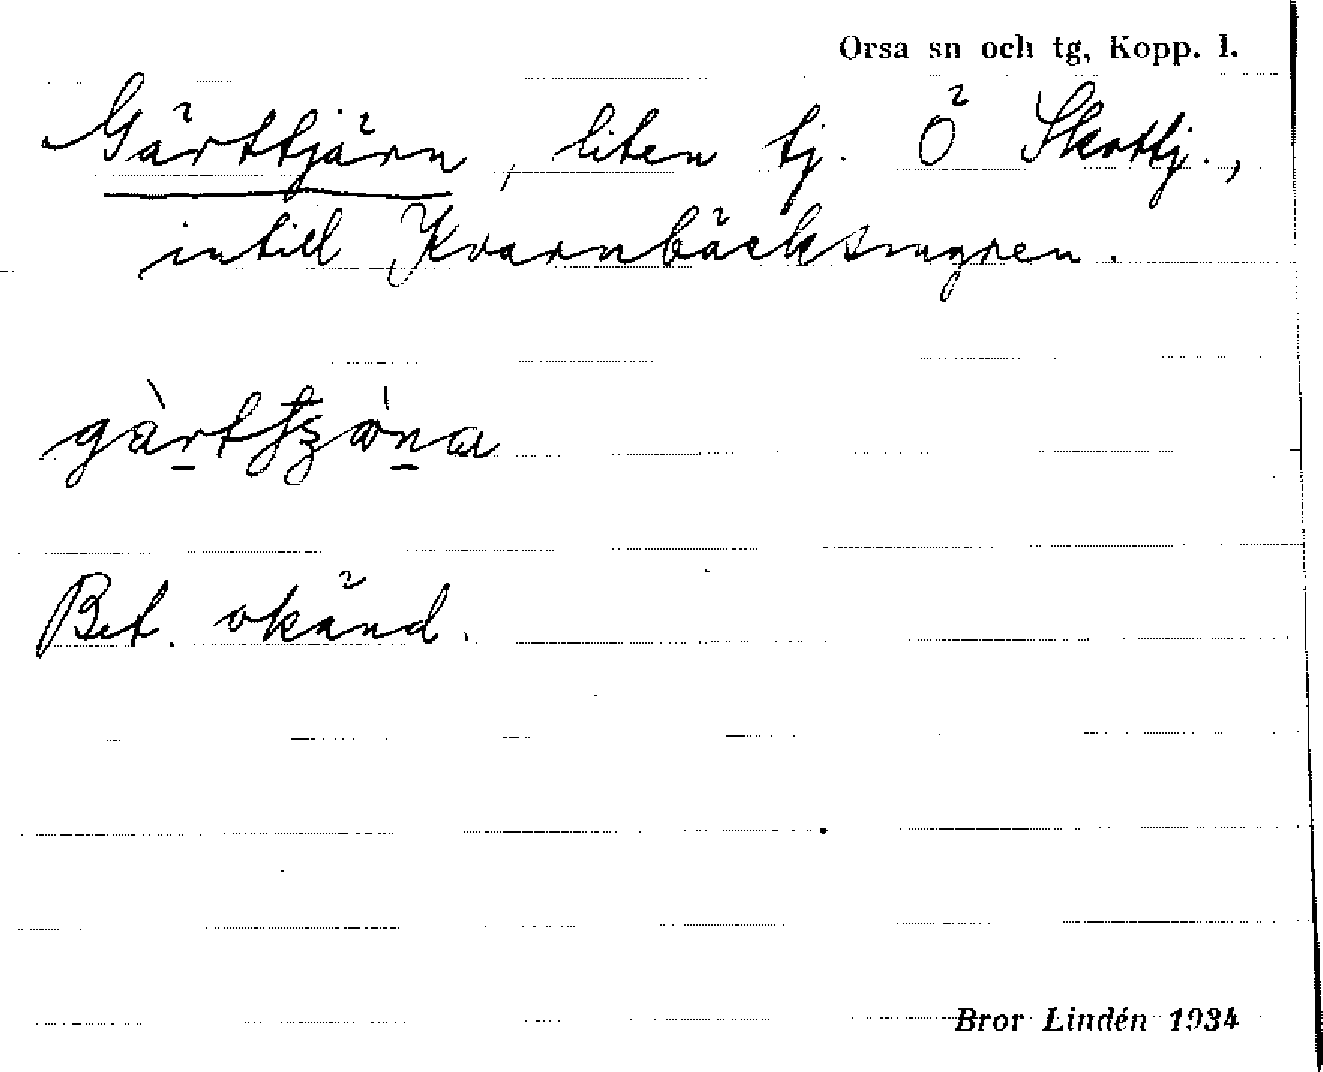 Orsa sn och tg, Kopp. l.
Gärttjärn, liten tj. Ö Skottj.,
intill Kvarnbäcksmyren.
Bet. okänd.
Bror Lindén 1934